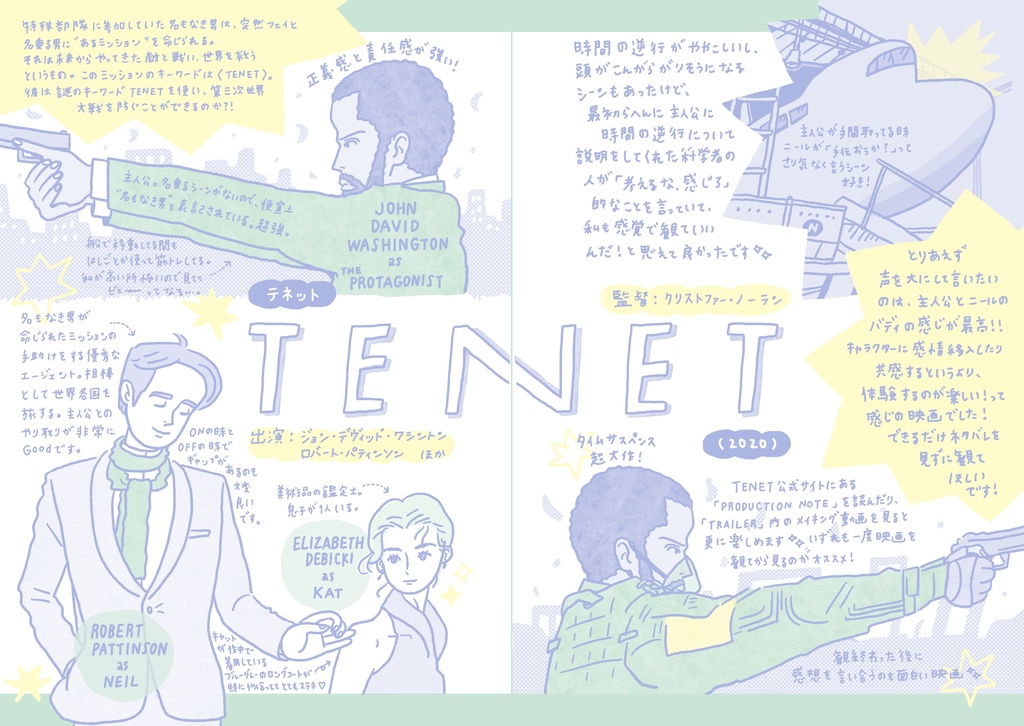 特殊部隊に参加していた名もなき男は、突然フェイと
名乗る男に"あるミッション"を命じられる。
それは未来からやってきた敵と戦い、世界を救う
というもの。このミッションのキーワードは〈TENET〉。
彼は謎のキーワードTENETを使い、第三次世界
大戦を防ぐことができるのか?!
正義感と責任感が強い!
主人公。名乗るシーンがないので、便宜上
"名もなき男"と表記されている。超強。
JOHN
DAVID
WASHINGTON
as
THE PROTAGONIST
船で移動してる間も
はしごとか使って筋トレしてる。
私が高い所怖いので見てて
ヒェーーってなる…。
時間の逆行がややこしいし、
頭がこんがらがりそうになる
シーンもあったけど、
最初らへんに主人公に
時間の逆行について
説明をしてくれた科学者の
人が「考えるな、感じろ」
的なことを言っていて、
私も感覚で観ていい
んだ!と思えて良かったです
主人公が手間取ってる時
ニールが「手伝おうか?」って
さり気なく言うシーン
好き!
N
とりあえず
声を大にして言いたい
のは、主人公とニールの
バディの感じが最高!!
キャラクターに感情移入したり
共感するというより、
体験するのが楽しい!って
感じの映画でした!
できるだけネタバレを
見ずに観て
ほしい
です!
テネット
監督:クリストファー・ノーラン
TENET
(2020)
出演:ジョン・デヴィッド・ワシントン
ロバート・パティンソン ほか
名もなき男が
命じられたミッションの
手助けをする優秀な
エージェント。相棒
として世界各国を
旅する。主人公との
やり取りが非常に
Goodです。
ONの時と
OFFの時で
ギャップが
あるのも
大変
良い
です。
ROBERT
PATTINSON
as
NEIL
美術品の鑑定士。
息子が1人いる。
ELIZABETH
DEBICKI
as
KAT
キャットが
作中で
着用している
ブルーグレーのロングコートが
特に似合っててとてもステキ♡
タイムサスペンス
超大作!
TENET公式サイトにある
「PRODUCTION NOTE」を読んだり、
「TRAILER」内のメイキング動画を見ると
更に楽しめます いずれも一度映画を
観てから見るのがオススメ!
観終わった後に
感想を言い合うのも面白い映画